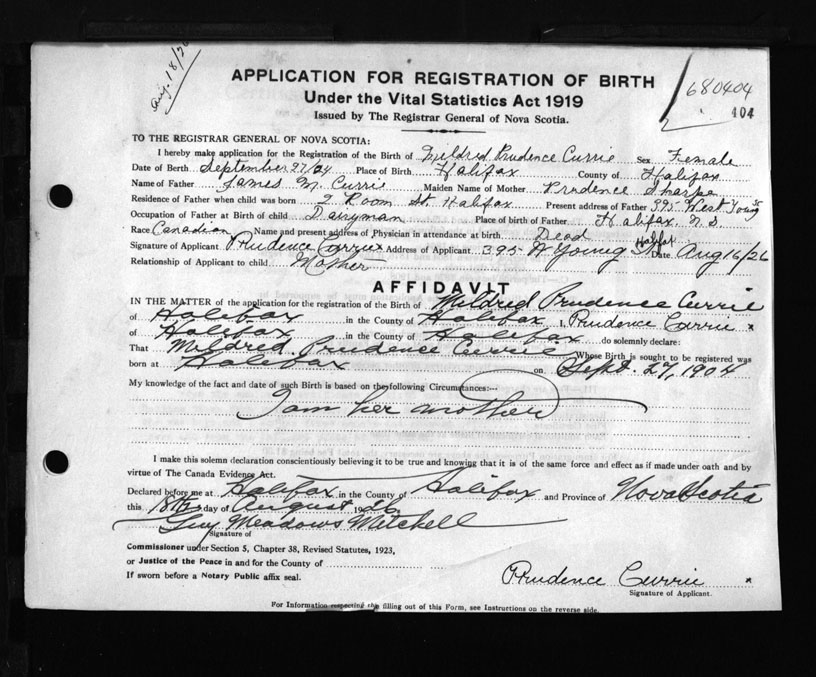 Aug. 18/26
APPLICATION FOR REGISTRATION OF BIRTH
680404
Under the Vital Statistics Act 1919
104
Issued by The Registrar General of Nova Scotia.
TO THE REGISTRAR GENERAL OF NOVA SCOTIA:
I hereby make application for the Registration of the Birth of Mildred Prudence Currie Sex Female
Date of Birth September 27/04 Place of Birth Halifax County of Halifax
Name of Father James M. Currie Maiden Name of Mother Prudence Sharpe
Residence of Father when child was born 2 Room St Halifax Present address of Father 395 West Young St
Occupation of Father at Birth of child Dairyman Place of birth of Father Halifax. N.S.
Race Canadian Name and present address of Physician in attendance at birth Dead
Signature of Applicant Prudence Currie x Address of Applicant 395 W Young St Halifax Date Aug 16/26
Relationship of Applicant to child Mother
AFFIDAVIT
IN THE MATTER of the application for the registration of the Birth of Mildred Prudence Currie
of Halifax in the County of Halifax I, Prudence Currie x
of Halifax in the County of Halifax do solemnly declare:
That Mildred Prudence Currie Whose Birth is sought to be registered was
born at Halifax on Sept. 27, 1904
My knowledge of the fact and date of such Birth is based on the following Circumstances:—
I am her mother
I make this solemn declaration conscientiously believing it to be true and knowing that it is of the same force and effect as if made under oath and by
virtue of The Canada Evidence Act.
Declared before me at Halifax in the County of Halifax and Province of Nova Scotia
this 18th day of August 1926.
Guy Meadows Mitchell
Signature of
Commissioner under Section 5, Chapter 38, Revised Statutes, 1923,
or Justice of the Peace in and for the County of
If sworn before a Notary Public affix seal.
Prudence Currie x
Signature of Applicant.
For Information respecting the filling out of this Form, see Instructions on the reverse side.